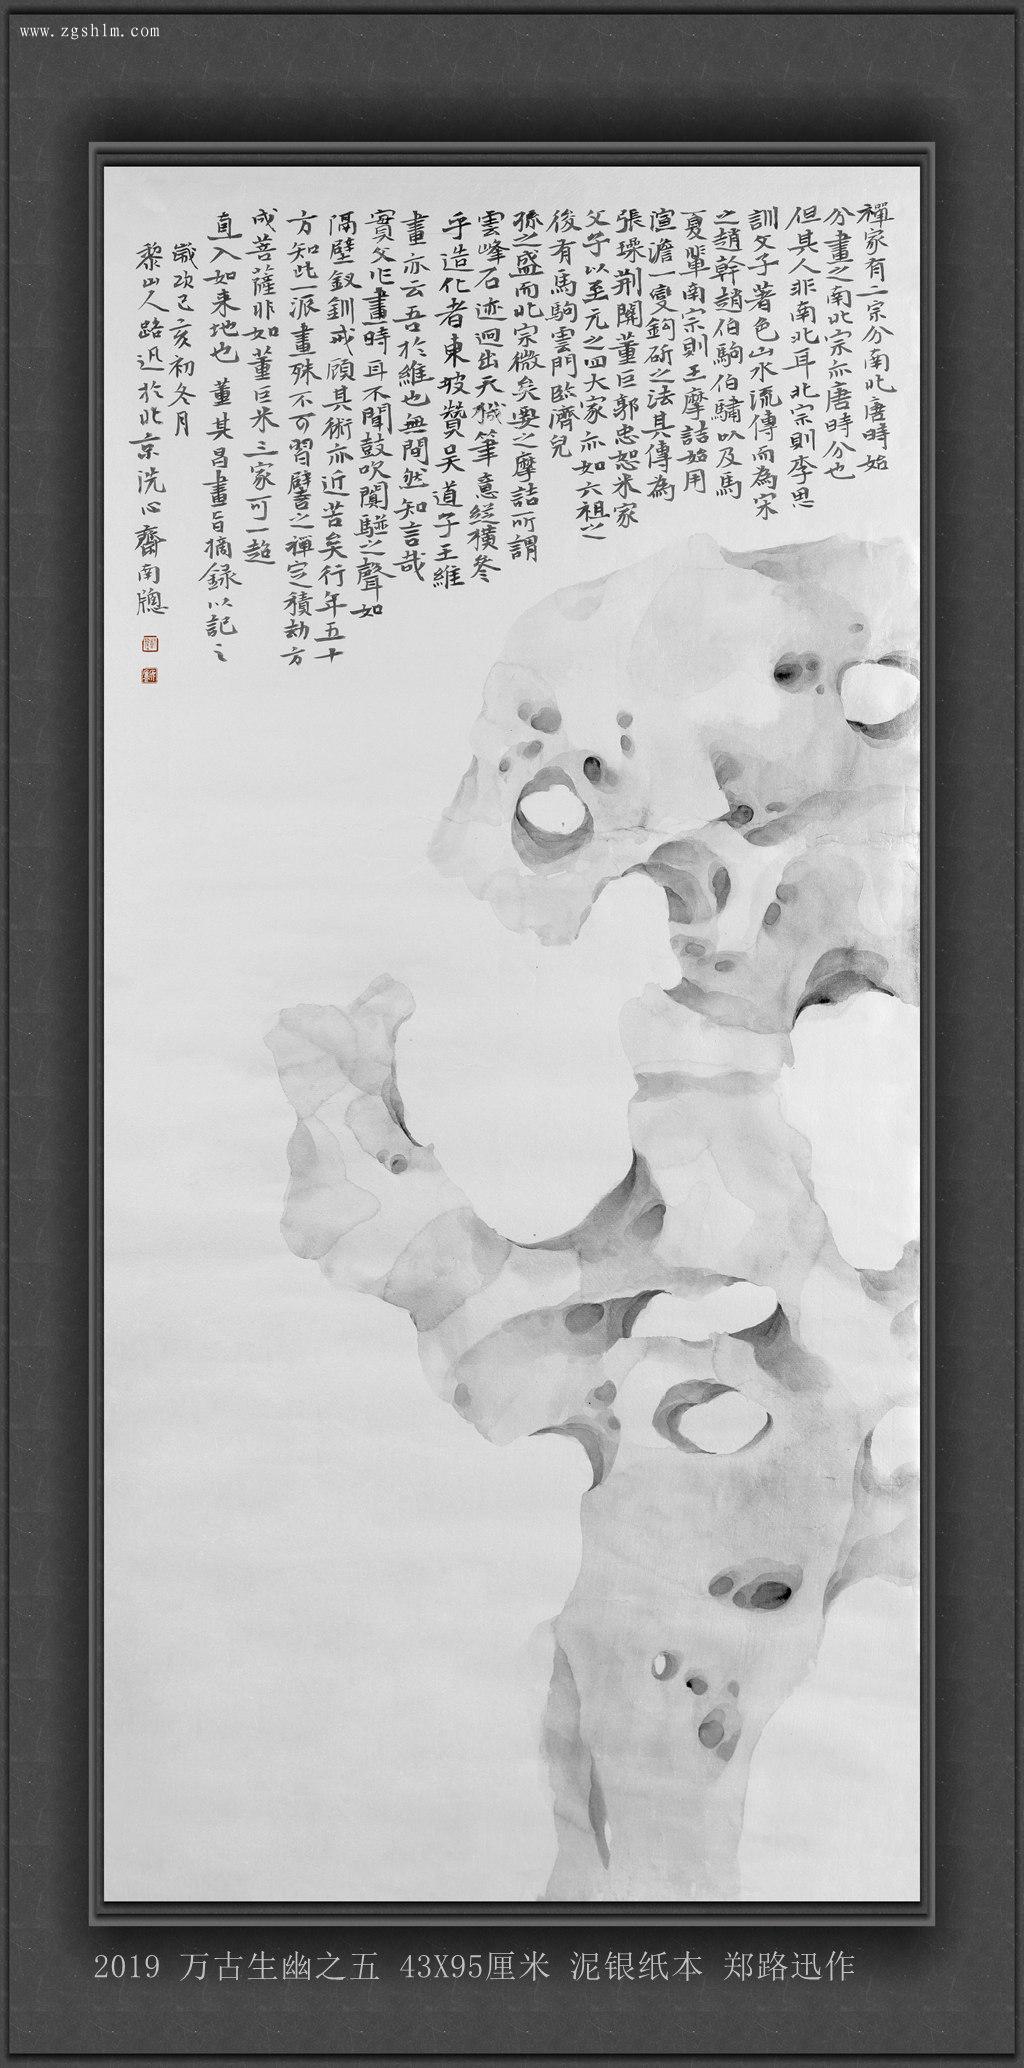 www.zgshlm.com
禪家有二宗分南北唐時始
分畫之南北宗亦唐時分也
但其人非南北耳北宗則李思
訓父子著色山水流傳而為宋
之趙幹趙伯駒伯驌以及馬
夏輩南宗則王摩詰始用
渲澹一變鈎斫之法其傳為
張璪荆關董巨郭忠恕米家
父子以至元之四大家亦如六祖之
後有馬駒雲門臨濟兒
孫之盛而北宗微矣要之摩詰所謂
雲峰石迹迥出天機筆意縱橫參
乎造化者東坡贊吳道子王維
畫亦云吾於維也無間然知言哉
實父作畫時耳不聞鼓吹闐駢之聲如
隔壁釵釧戒顧其術亦近苦矣行年五十
方知此一派畫殊不可習譬之禪定積劫方
成菩薩非如董巨米三家可一超
直入如来地也 董其昌畫旨摘録以記之
歲次己亥初冬月
黎山人路迅於北京洗心齋南牕
2019 万古生幽之五 43X95厘米 泥银纸本 郑路迅作